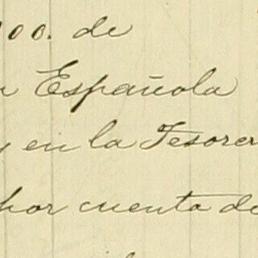 00. de
Española
y en la Tesorer
por cuenta de